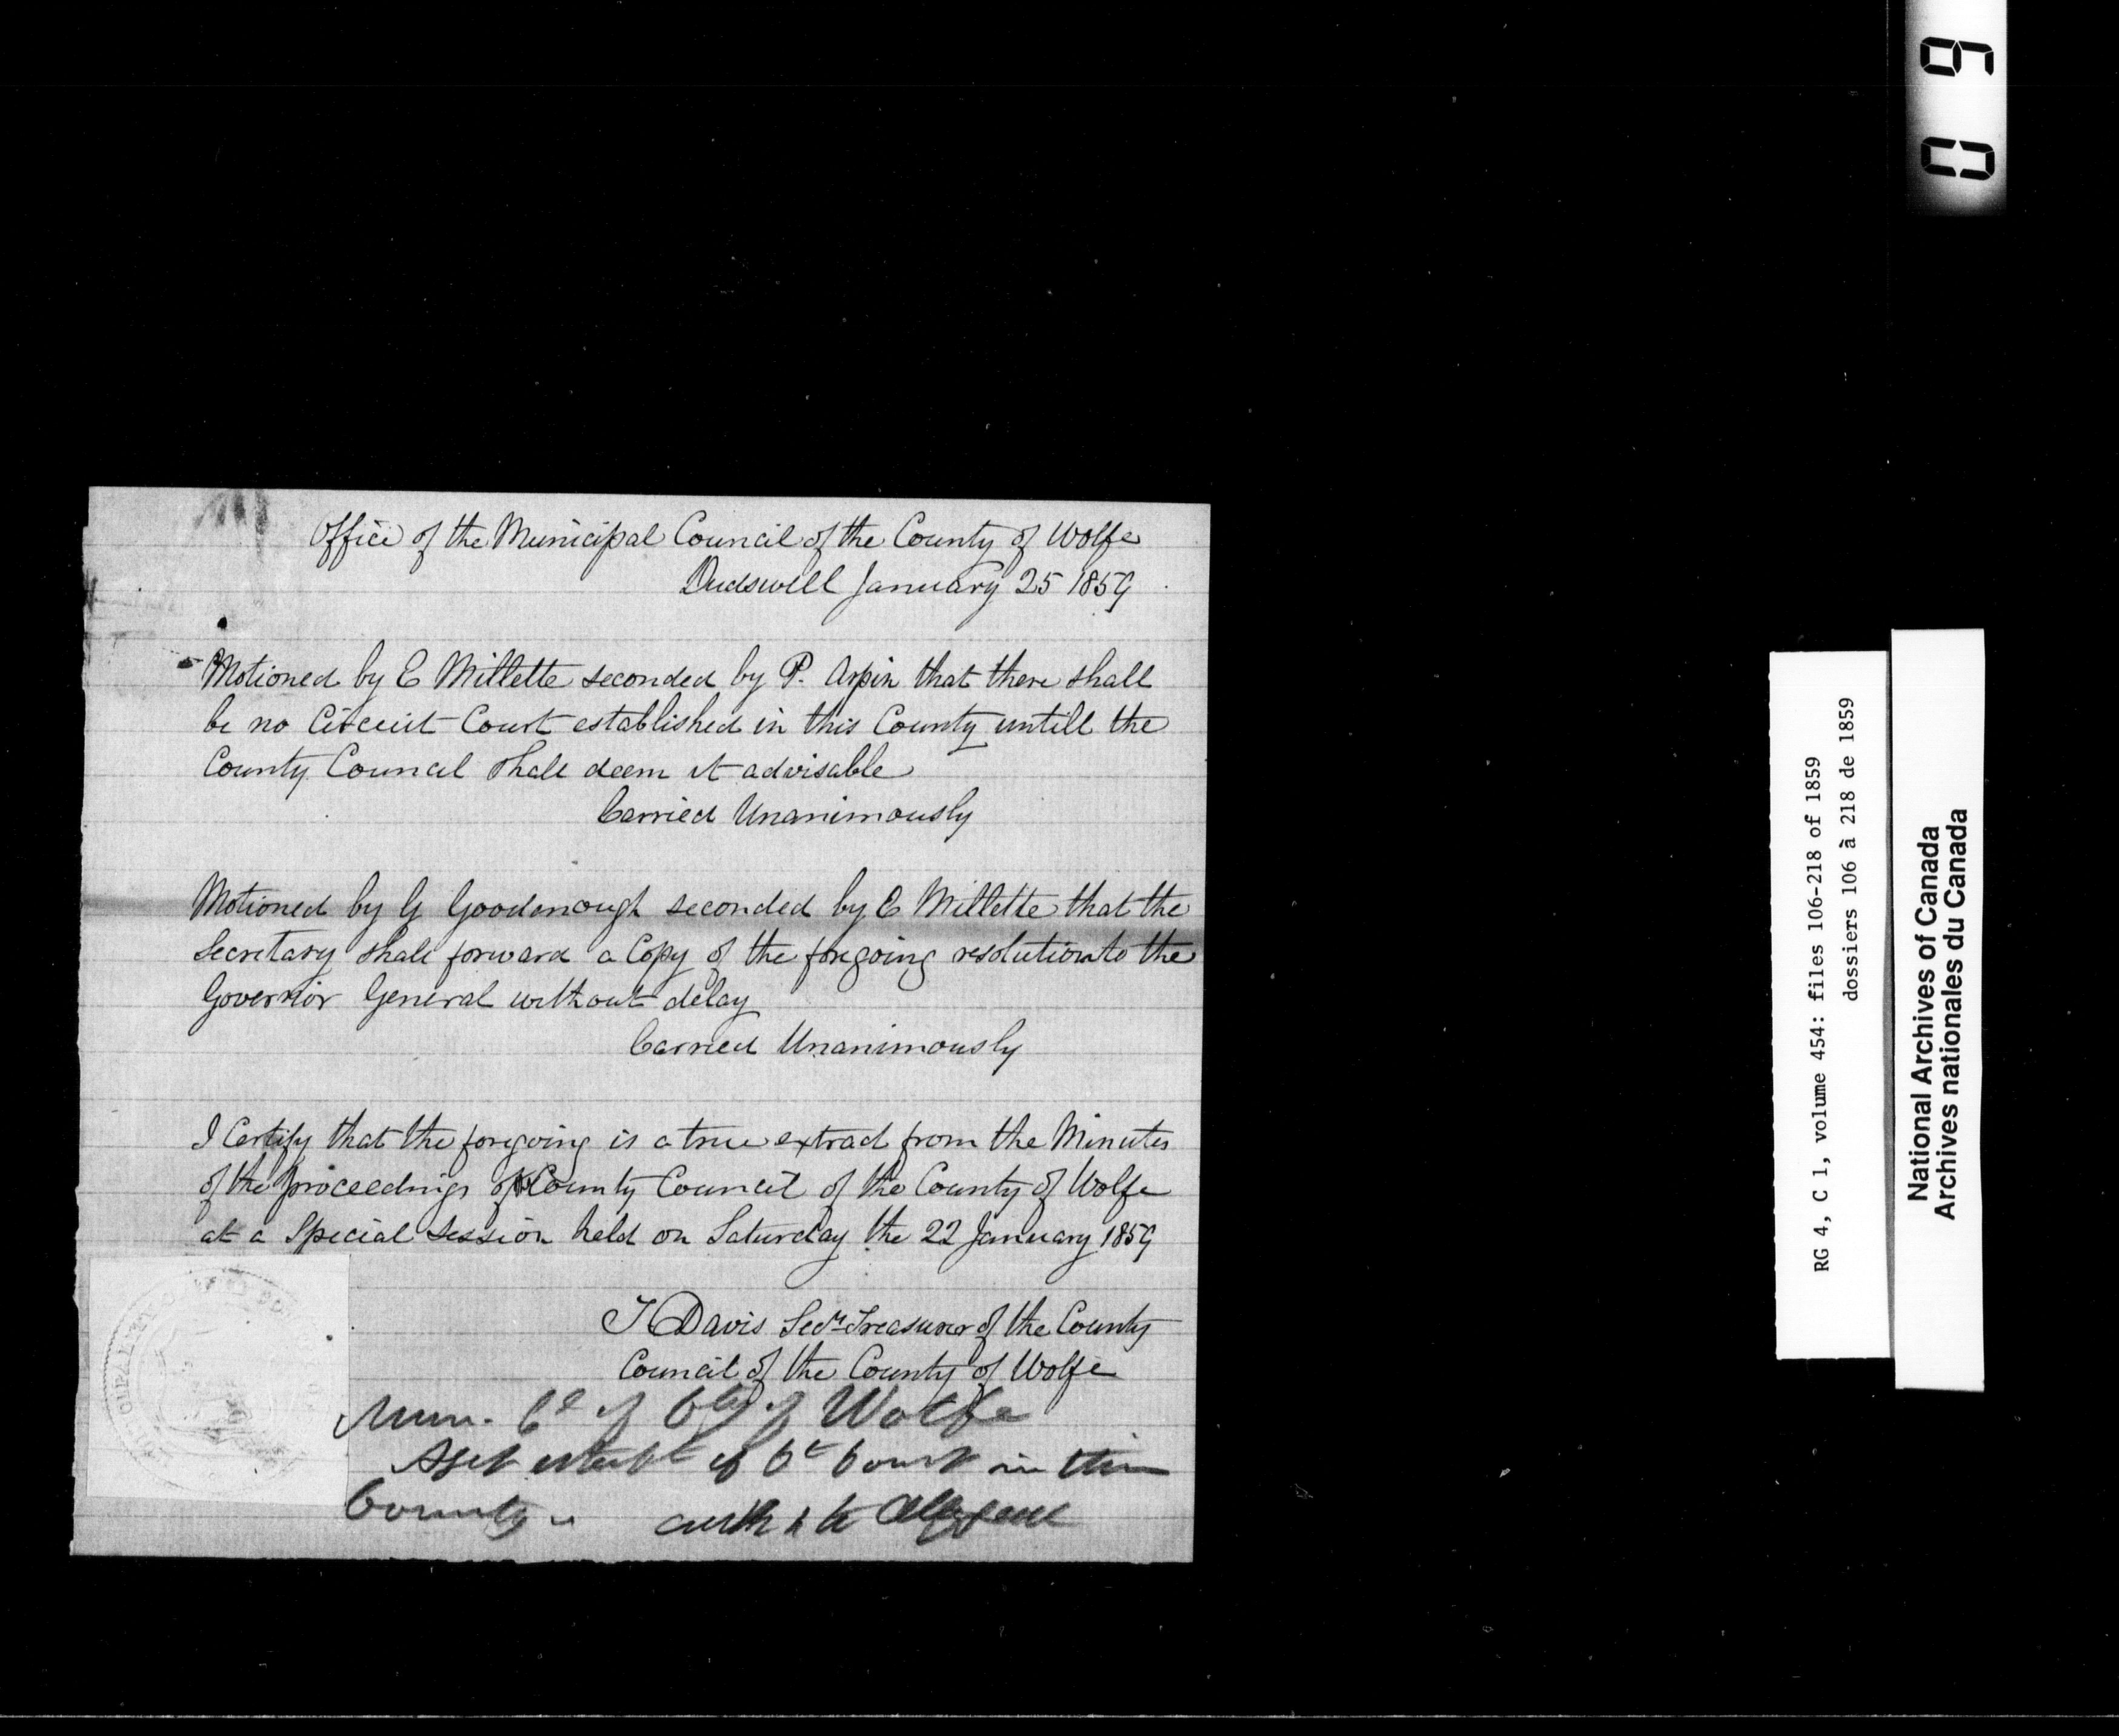 Office of the Municipal Council of the County of Wolfe
Dudswell January 25 1859
Motioned by E Millette seconded by P. Arpin that there shall
be no Circuit Court established in this County untill the
County Council shall deem it advisable
Carried Unanimously
Motioned by G Goodenough seconded by E Millette that the
Secretary shall forward a Copy of the forgoing resolution to the
Governor General without delay
Carried Unanimously
I Certify that the forgoing is a true extract from the Minutes
of the proceedings of the County Council of the County of Wolfe
at a Special Session held on Saturday the 22 January 1859
T Davis Secy Treasurer of the County
Council of the County of Wolfe
Mun. Cl of Cty of Wolfe
Agst establt of Ct Court in this
County
RG 4, C 1, volume 454: files 106-218 of 1859
dossiers 106 à 218 de 1859
National Archives of Canada
Archives nationales du Canada